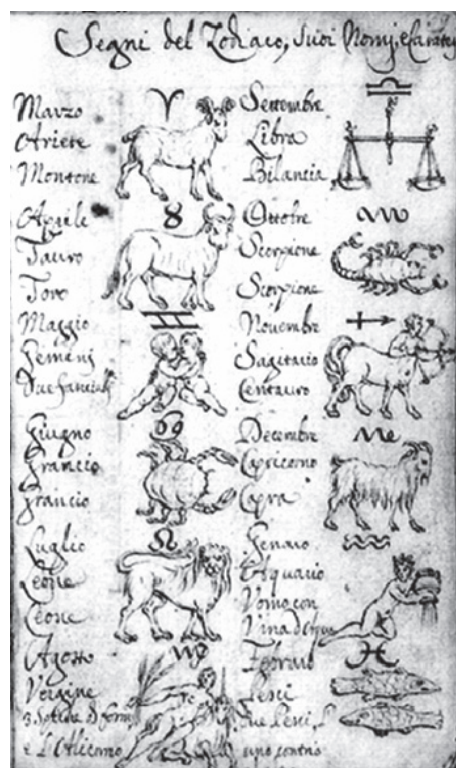 Segni del Zodiaco, Suoi Nomi, e Caratt
Marzo
Ariete
Montone
Aprile
Tauro
Toro
Maggio
Gemini
Due fanciulli
Giugno
Grancio
Grancio
Luglio
Leone
Leone
Agosto
Vergine
3 Spiche di form
e L'Alicorno
Settembre
Libra
Bilancia
Ottobre
Scorpione
Scorpione
Novembre
Sagitario
Centauro
Decembre
Capricorno
Capra
Genaro
Aquario
Vomo con
Vrna d'Aqua
Febraro
Pesci
Due Pesci, L'
uno contro